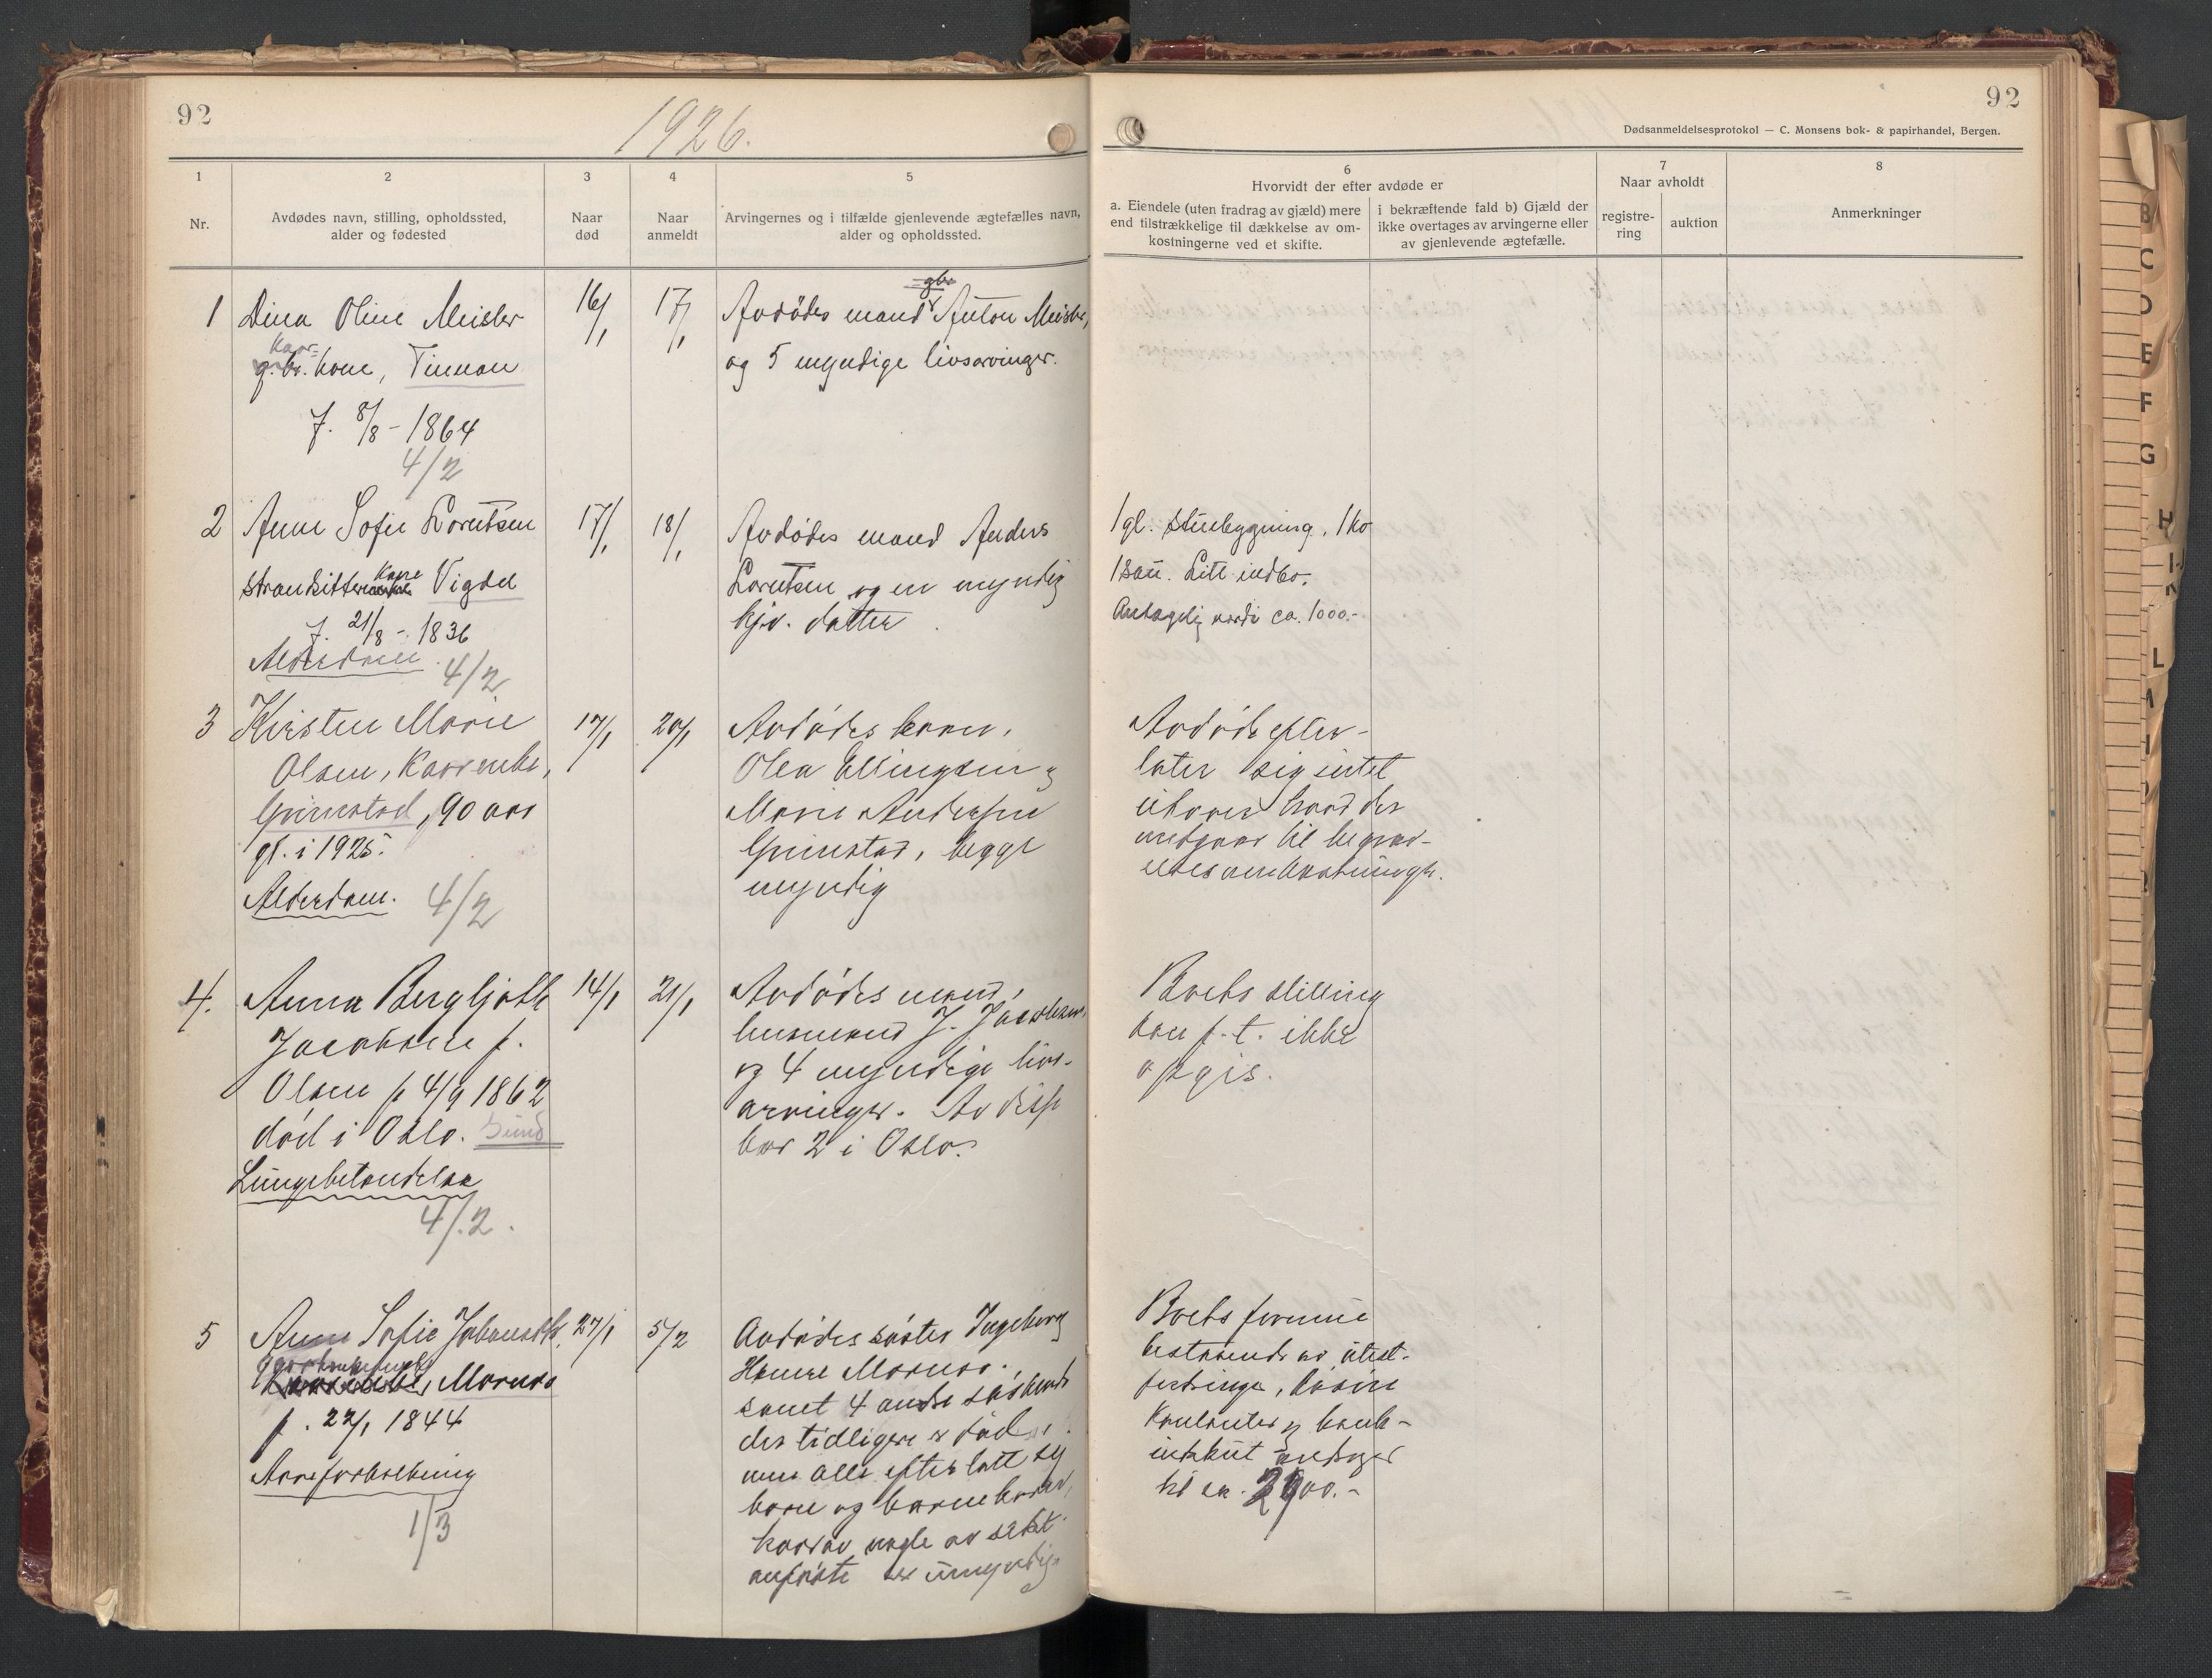 92
1926.
92
Dødsanmeldelsesprotokol — C. Monsens bok- & papirhandel, Bergen.
1
Nr.
2
Avdødes navn, stilling, opholdssted,
alder og fødested
3
Naar
død
4
Naar
anmeldt
5
Arvingernes og i tilfælde gjenlevende ægtefælles navn,
alder og opholdssted.
6
Hvorvidt der efter avdøde er
a. Eiendele (uten fradrag av gjæld) mere
end tilstrækkelige til dækkelse av om-
kostningerne ved et skifte.
i bekræftende fald b) Gjæld der
ikke overtages av arvingerne eller
av gjenlevende ægtefælle.
7
Naar avholdt
registre-
ring
auktion
8
Anmerkninger
1
Dina Oline Meisler
kaar-
g.br. kone, Tinnan
f. 8/8 - 1864
4/2
16/1
17/1
gbr.
Avdødes mand Anton Meisler,
og 5 myndige livsarvinger.
2
Anne Sofie Lorntsen
strandsitter kone Vigdel
f. 21/8 - 1836
Alderdom
4/2
17/1
18/1
Avdødes mand Anders
Lorntsen og en myndig
datter
1 gl. stuebygning, 1 ko
1 sau. Litt indbo.
Antagelig verdi ca. 1000.-
3
Kirsten Marie
Olsen, Kaarenke,
Grimstad, 90 aar
gl. i 1925.
Alderdom.
4/2
17/1
20/1
Avdødes barn,
Olea Ellingsen og
Marie Andersen
Grimstad, begge
myndig
Avdøde efter-
later sig intet
utover hvad der
medgaar til begrav-
elsesomkostninger.
4.
Anna Bergljotte
Jacobsen f.
Olsen f 4/9 1862
død i Oslo. Sund
Lungebetændelse
4/2.
14/1
21/1
Avdødes mand,
husmand J. Jacobsen,
og 4 myndige livs-
arvinger. Av disse
bor 2 i Oslo.
Boets stilling
kan p.t. ikke
opgis.
5
Anne Sofie Johansdtr.
Mornes
f. 22/1 1844
Aareforkalkning
1/3
27/1
5/2
Avdødes søster Ingeborg
samt 4 andre søskende
der tidligere er død
men alle efterlatt sig
barn og barnebarn,
hvorav nogle av sidst
anførte er umyndige
Boets formue
bestaaende av utest.
fordringer, løsøre
kontanter og bank-
indskut andrager
til ca. 2900.-
B
C
D
E
F
G
H
L